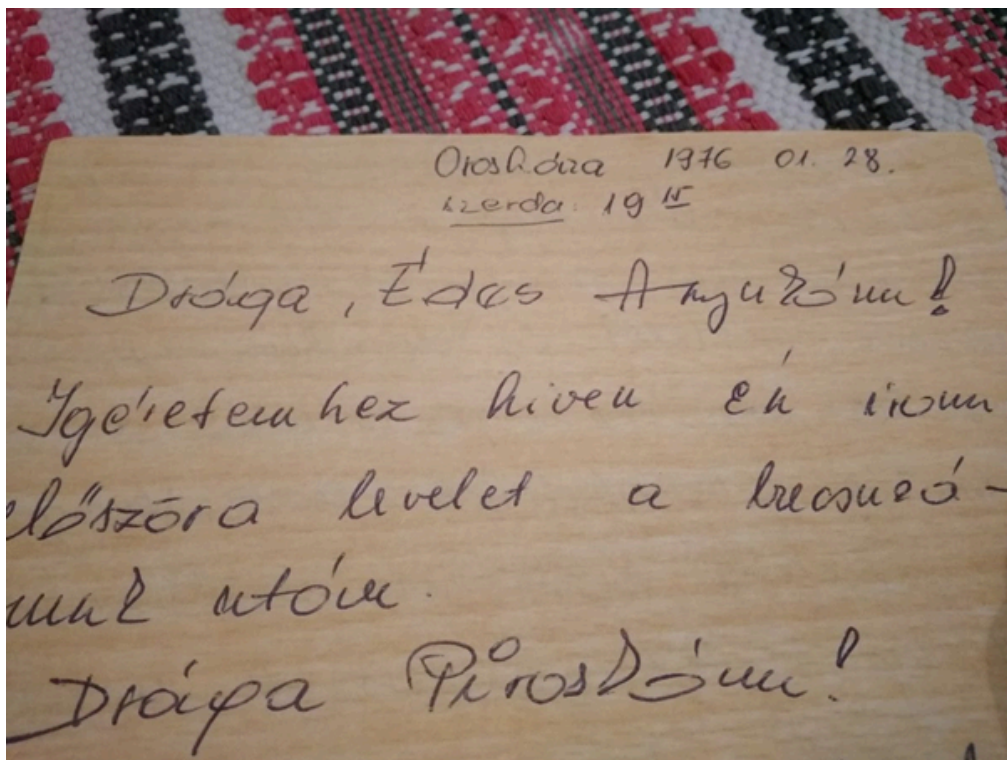 Orosháza 1976 01. 28.
szerda. 19 15
Drága, Édes Anyukám!
Igéretemhez híven én írom
először a levelet a bucsuzá-
sunk után.
Drága Piroskám!